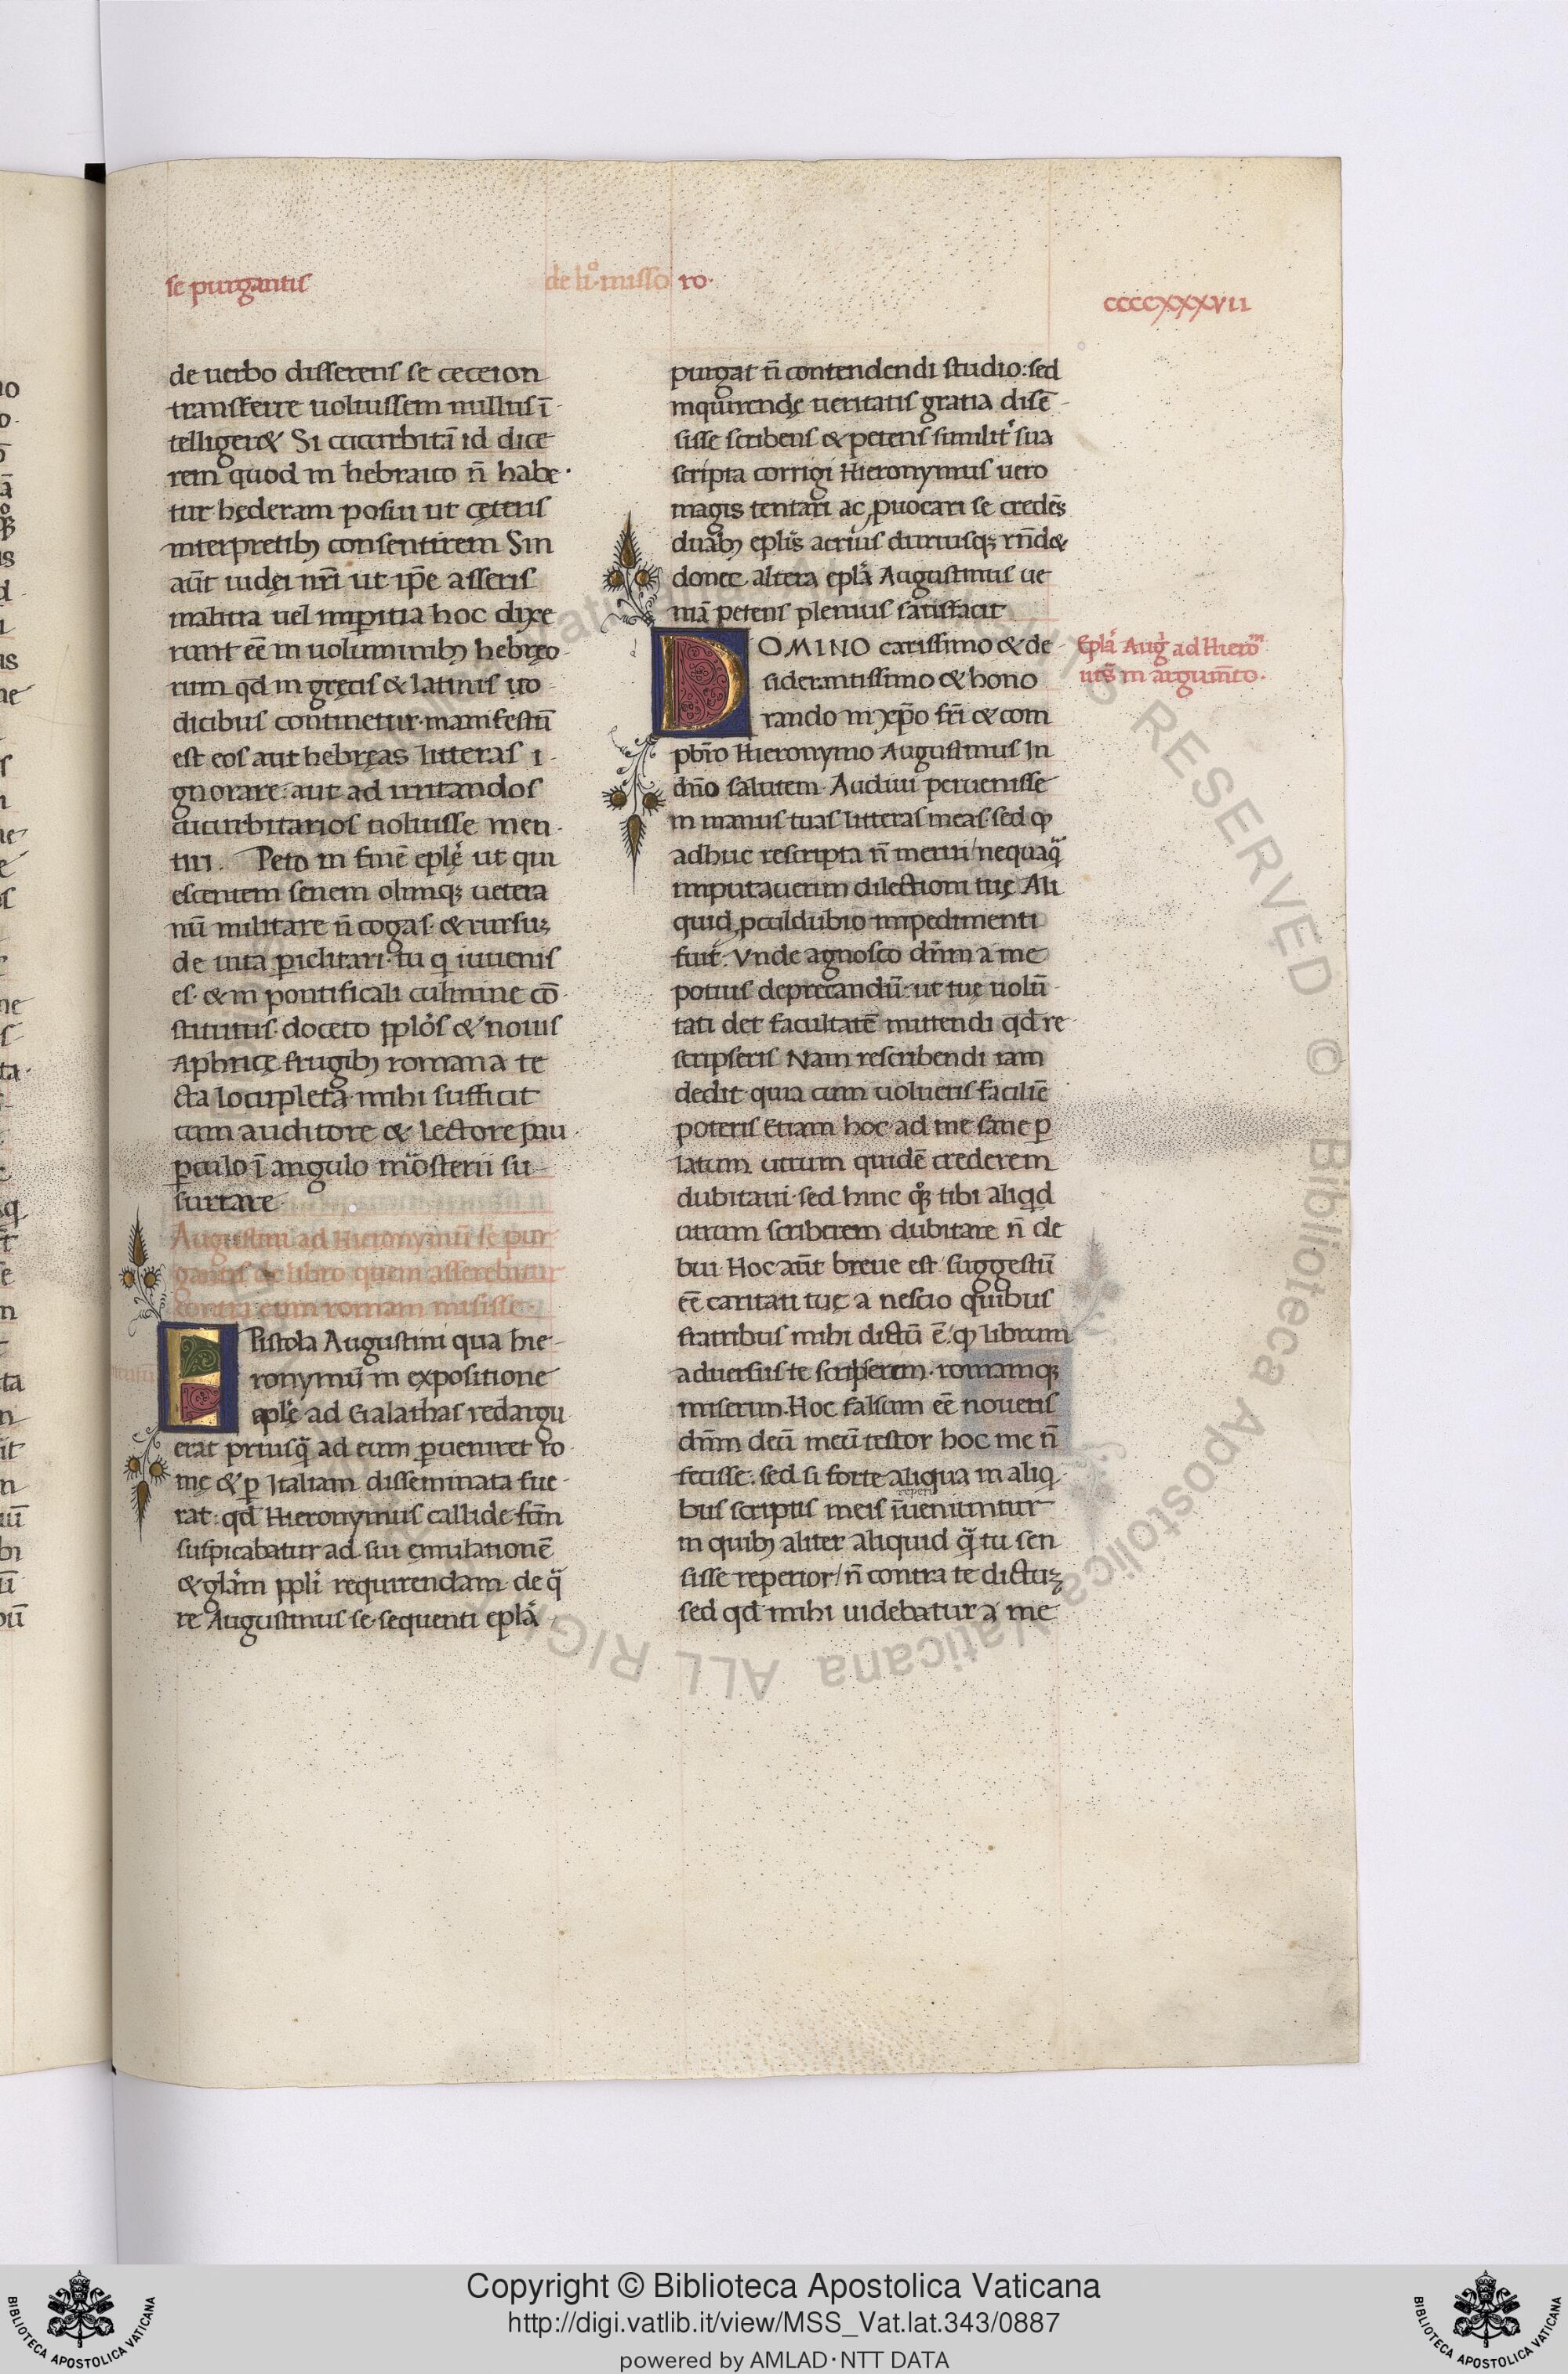 se purgantis
de li͞o·misso
ro·
ccccxxxvii
de uerbo disserens se ceceion
transferre uoluissem nullus ī
telliger& Si cucurbitā id dice
rem quod in hebraico n̄ habe·
tur hęderam posui ut cęteris
interpretibꝫ consentirem Sin
aūt iudęi nr̄i ut ip̄e asseris
malitia uel imꝑitia hoc dixe
runt eē in uoluminibꝫ hebręo
rum qd̄ in gręcis & latinis uo
dicibus continetur·manifestū
est eos aut hebręas litteras i
gnorare:aut ad irritandos
cucurbitarios uoluisse men
tiri. Peto in finē eplę̄ ut qui
escentem senem olimqꝫ uetera
nū militare n̄ cogas·& rursuꝫ
de uita ꝑiclitari·tu q iuuenis
es·& in pontificali culmine cō
stitutus·doceto pplōs & nouis
Aphricę frugibꝫ romana te
cta locupleta·mihi sufficit
cum auditore & lectore pau
ꝑculo ī angulo mo̅sterii su
surrare·
Augustini ad Hieronymū se pur
gantis de libro quem asserebatur
contra eum romam misisse·
EPistola Augustini qua hie
ronymū in expositione
eplę̄ ad Galathas redargu
erat priusq̄ ad eum ꝑueniret ro
mę & ꝑ Italiam disseminata fue
rat:qd̄ Hieronymus callide fc̄m
suspicabatur ad sui ęmulationē
& glām ppli̅ requirendam·de q̄
re Augustinus se·sequenti eplā
purgat n̄ contendendi studio:sed
inquirendę ueritatis gratia disē
sisse scribens & petens similit̄ sua
scripta corrigi Hieronymus uero
magis tentari ac ꝓuocari se credēs
duabꝫ eplis̄ acrius duriusqꝫ rn̄d&
donec altera eplā Augustinus ue
niā petens plenius satisfacit
DOMINO carissimo & de
siderantissimo & hono
rando in xp̄o fr̄i & com
pb̄ro Hieronymo Augustinus In
dn̄o salutem·Audiui peruenisse
in manus tuas litteras meas·sed ꝙ
adhuc rescripta n̄ merui/nequaq̄
imputauerim dilectioni tuę Ali
quid ꝓculdubio impedimenti
fuit·Vnde agnosco dn̄m a me
potius deprecandū:ut tuę uolū
tati det facultatē mittendi qd̄ re
scripseris Nam rescribendi iam
dedit·quia cum uolueris facilie̅
poteris Etiam hoc·ad me sane ꝑ
latum utrum quidē crederem
dubitaui·sed hinc qꝫ tibi aliqd
utrum scriberem dubitare n̄ de
bui·Hoc aūt breue est·suggestū
eē caritati tuę a nescio quibus
fratribus mihi dictū ē:ꝙ librum
aduersus te scripserim·romamqꝫ
miserim·Hoc falsum eē noueris
dn̄m deū meū testor hoc me n̄
fecisse:sed si forte aliqua in aliq
reperi
bus scriptis meis īueniuntur
in quibꝫ aliter aliquid q̄ tu sen
sisse reperior/n̄ contra te dictuꝫ
sed qd̄ mihi uidebatur a me
Eplā Aug̅ ad Hiero̅
uts̄ in argum̄to·
Biblioteca Apostolica Vaticana ALL RIGHTS RESERVED ©
Copyright © Biblioteca Apostolica Vaticana
http://digi.vatlib.it/view/MSS_Vat.lat.343/0887
powered by AMLAD·NTT DATA
BIBLIOTECA APOSTOLICA VATICANA
BIBLIOTECA APOSTOLICA VATICANA